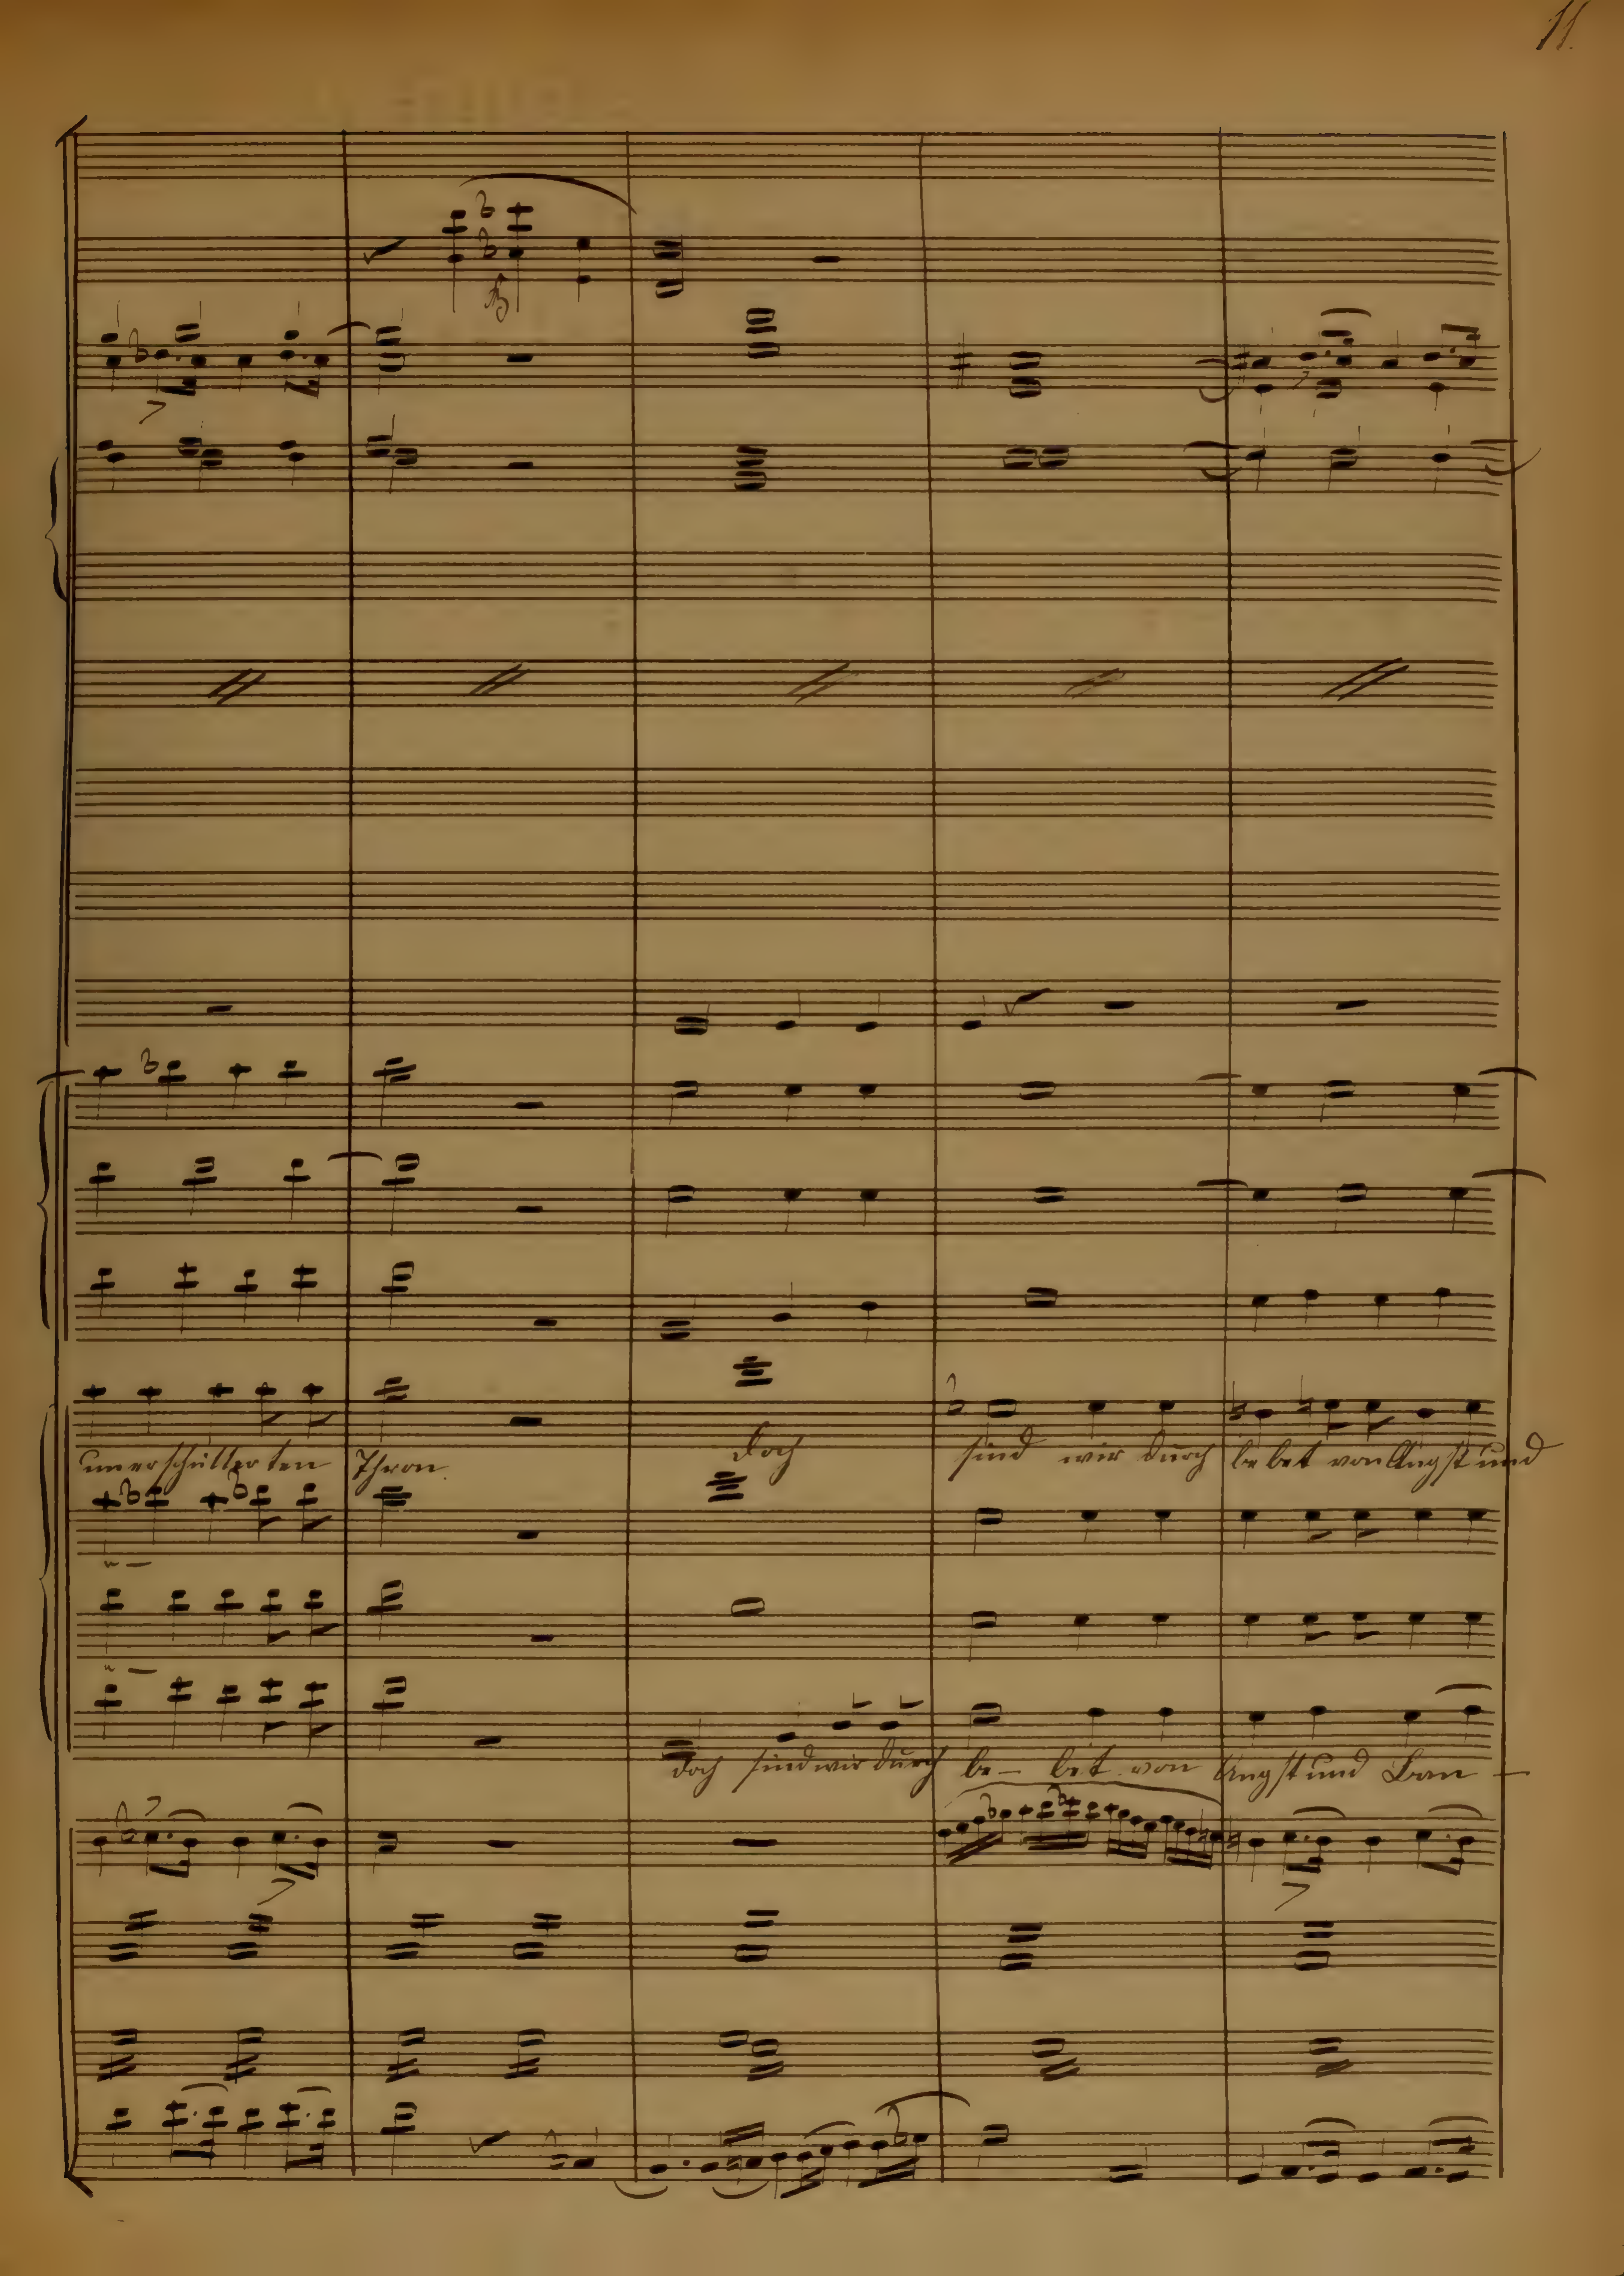 11.
unerschütterten Thron. Doch sind wir durch bebet von Angst und
doch sind wir durch be- bet von Angst und Ban -